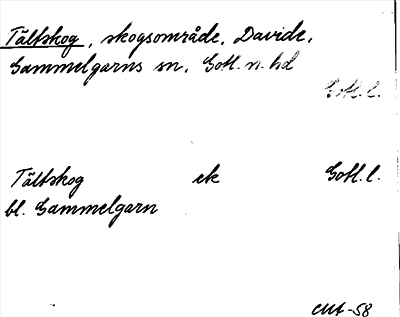 Tältskog, skogsområde, Davide,
Gammelgarns sn, Gotl. n. hd
Gotl. l.
Tältskog ek Gotl. l.
bl. Gammelgarn
-58